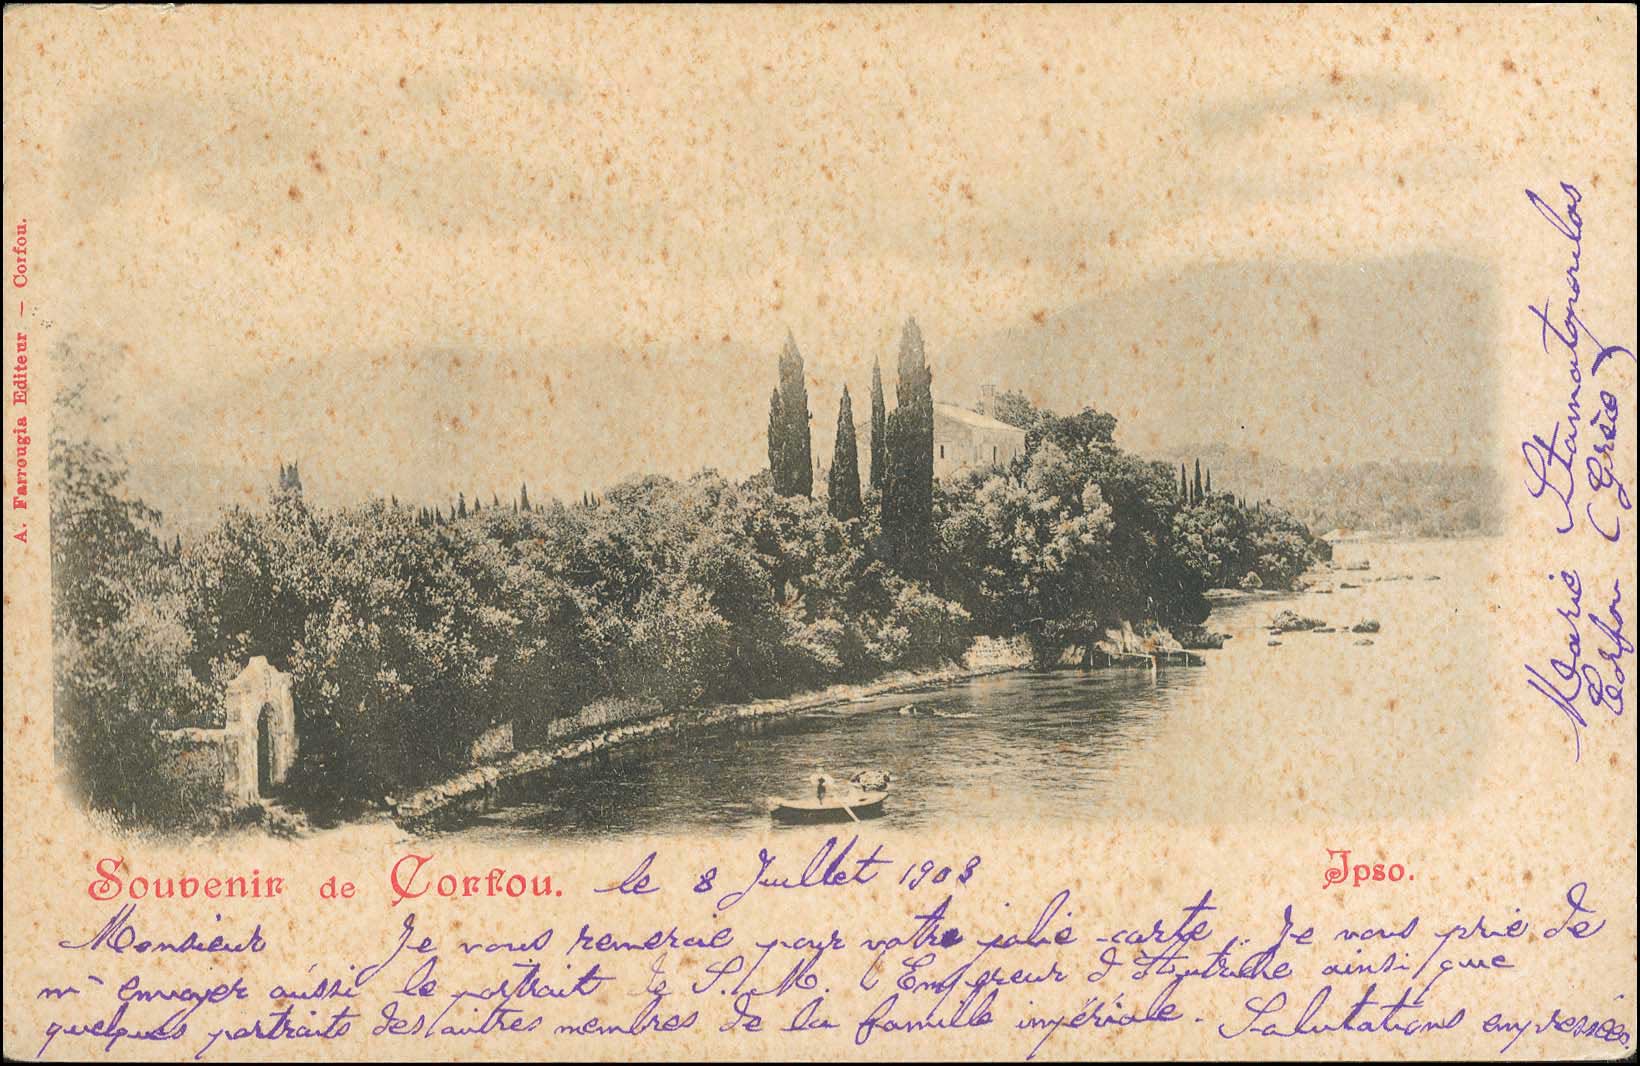 A. Farrougia Editeur — Corfou.
Souvenir de Corfou. le 8 Juillet 1903
Ipso.
Monsieur Je vous remercie pour votre jolie carte. Je vous prie de
m'envoyer aussi le portrait de S. M. l'Empereur d'Autriche ainsi que
quelques portraits des autres membres de la famille impériale. Salutations empressées.
Marie Stamatopoulos
Corfou (Grèce)